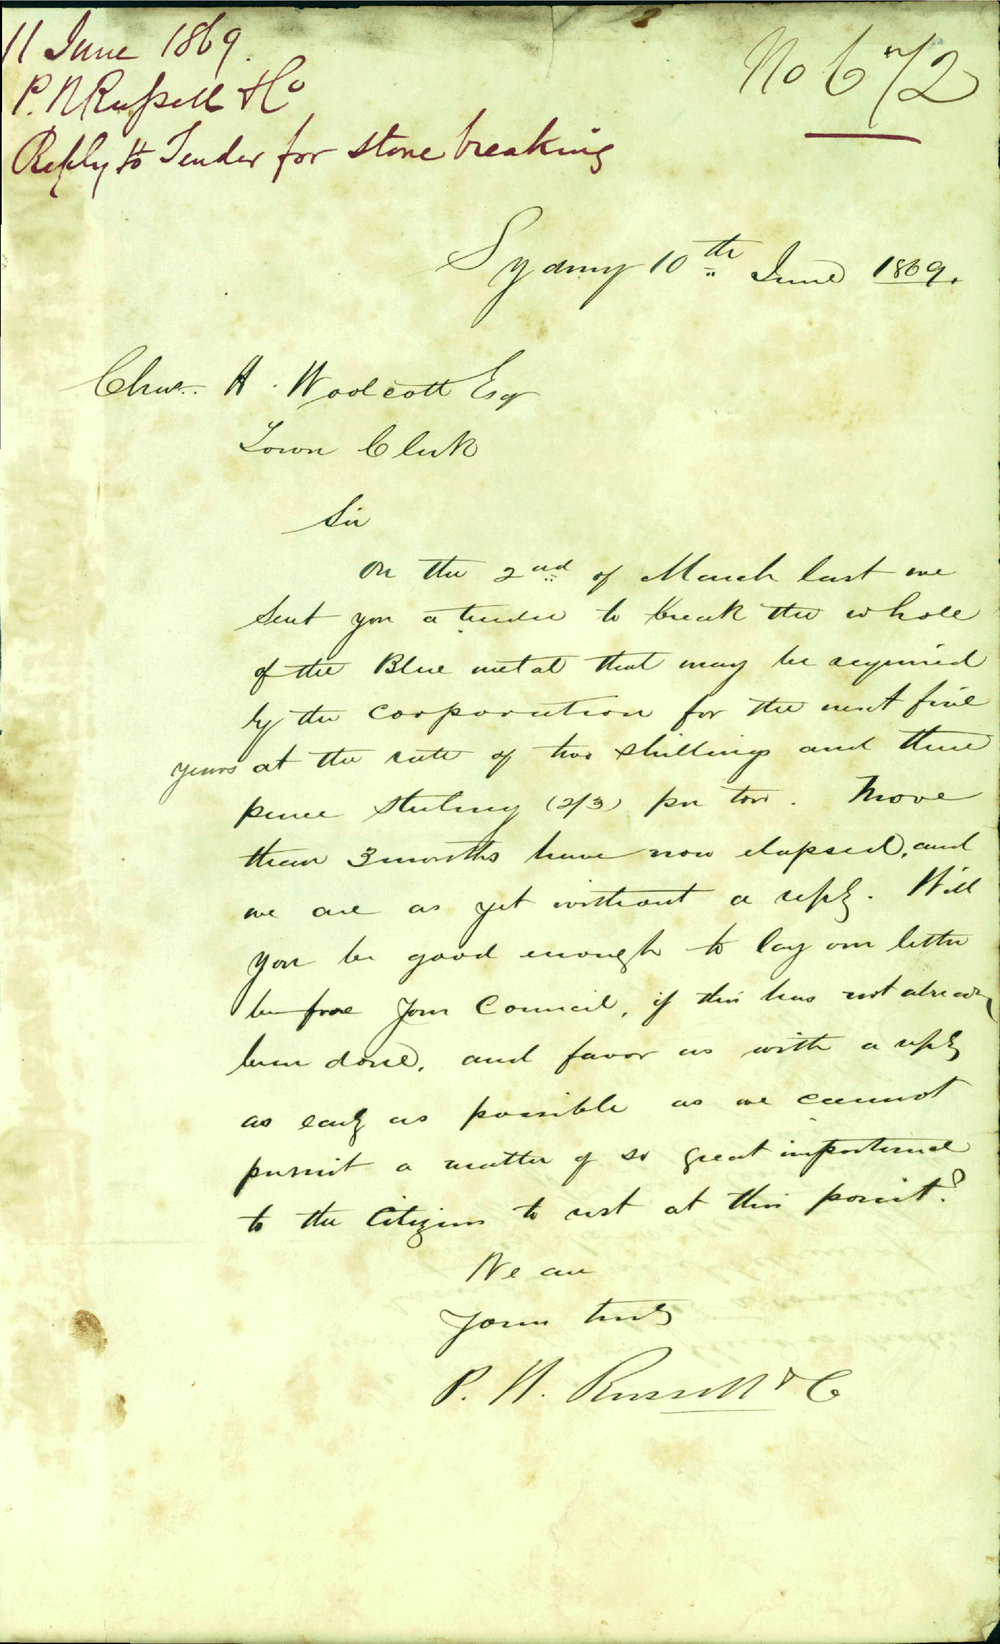 11 June 1869.
P. N Russell & Co
Reply to Tender for stone breaking
No 672
Sydney 10th June 1869.
Chas. H. Woolcott Esq
Town Clerk
Sir
On the 2nd of March last we
sent you a tender to break the whole
of the Blue metal that may be required
by the corporation for the next five
years at the rate of two shillings and three
pence sterling (2/3) per ton. More
than 3 months have now elapsed, and
we are as yet without a reply. Will
you be good enough to lay our letter
before your Council, if this has not already
been done, and favor us with a reply
as early as possible as we cannot
permit a matter of so great importance
to the Citizens to rest at this point?
We are
Yours truly
P. N. Russell & Co